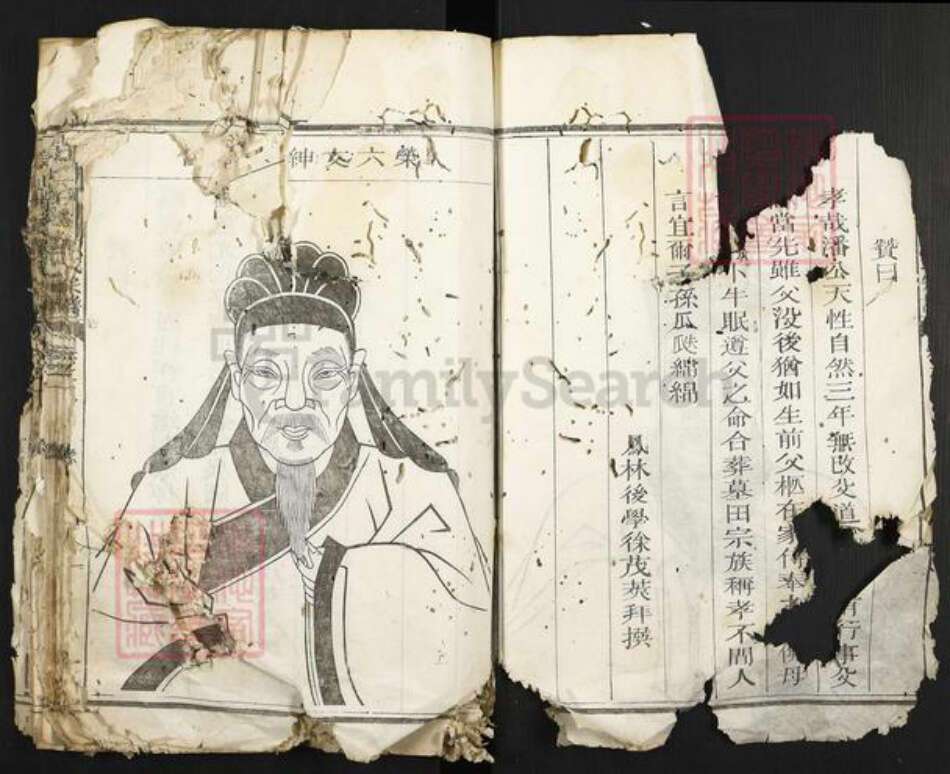 贊曰
孝哉潘公天性自然三年無改父道
行事父
當先雖父没後猶如生前父柩在家侍奉
母
卜牛眠遵父之命合葬墓田宗族稱孝不間人
言宜爾子孫瓜瓞綿綿
鳳林後學徐茂英拜撰
榮六
紳
FamilySearch